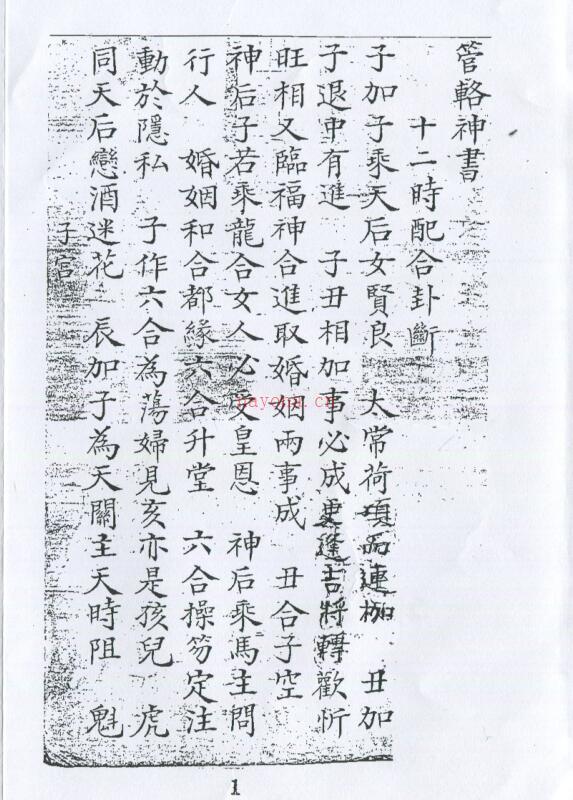 管輅神書
十二時配合卦斷
子加子乘天后女賢良　太常荷項而連枷　丑加
子退中有進　子丑相加事必成更逢吉將轉歡忻
旺相又臨福神合進取婚姻兩事成　丑合子空
神后子若乘龍合女人必受皇恩　神后乘馬主問
行人　婚姻和合都緣六合升堂　六合操笏定注
動於隱私　子作六合為蕩婦見亥亦是孩兒　虎
同天后戀酒迷花　辰加子為天關主天時阻　魁
子宮
1